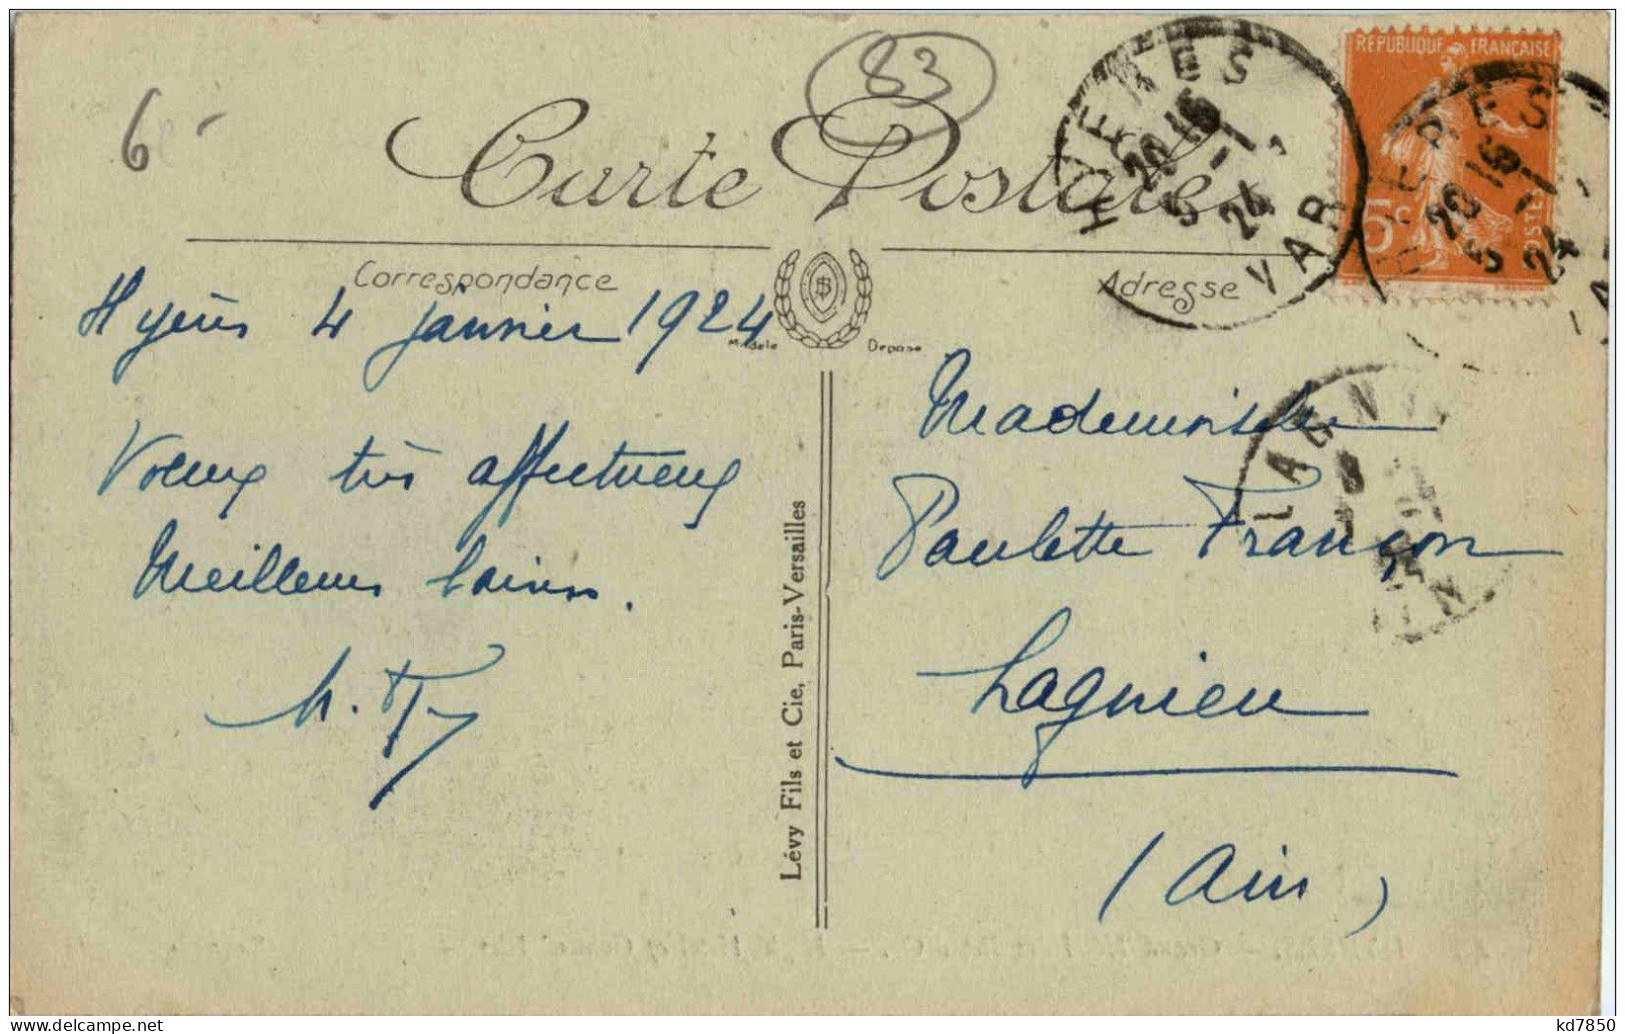 6
83
Carte Postale
HYERES
20 15
5 -1
24
VAR
REPUBLIQUE FRANÇAISE
5c
POSTES
HYERES
20 15
5 -1
24
Correspondance
Adresse
Modèle Déposé
Hyères 4 janvier 1924
Voeux très affectueux
Meilleurs baisers.
Mademoiselle
Paulette Françon
Lagnieu
(Ain)
LAGNI
Lévy Fils et Cie, Paris-Versailles
kd7850